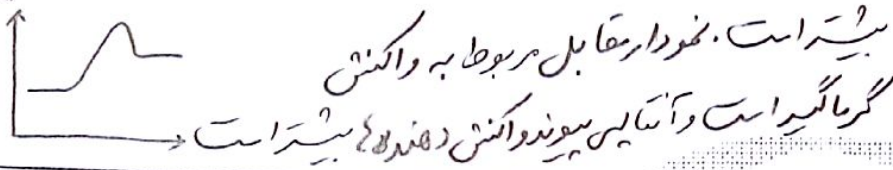 بیشتر است. نمودار مقابل مربوط به واکنش
گرماگیر است و آنتالپی پیوند واکنش دهنده ها بیشتر است